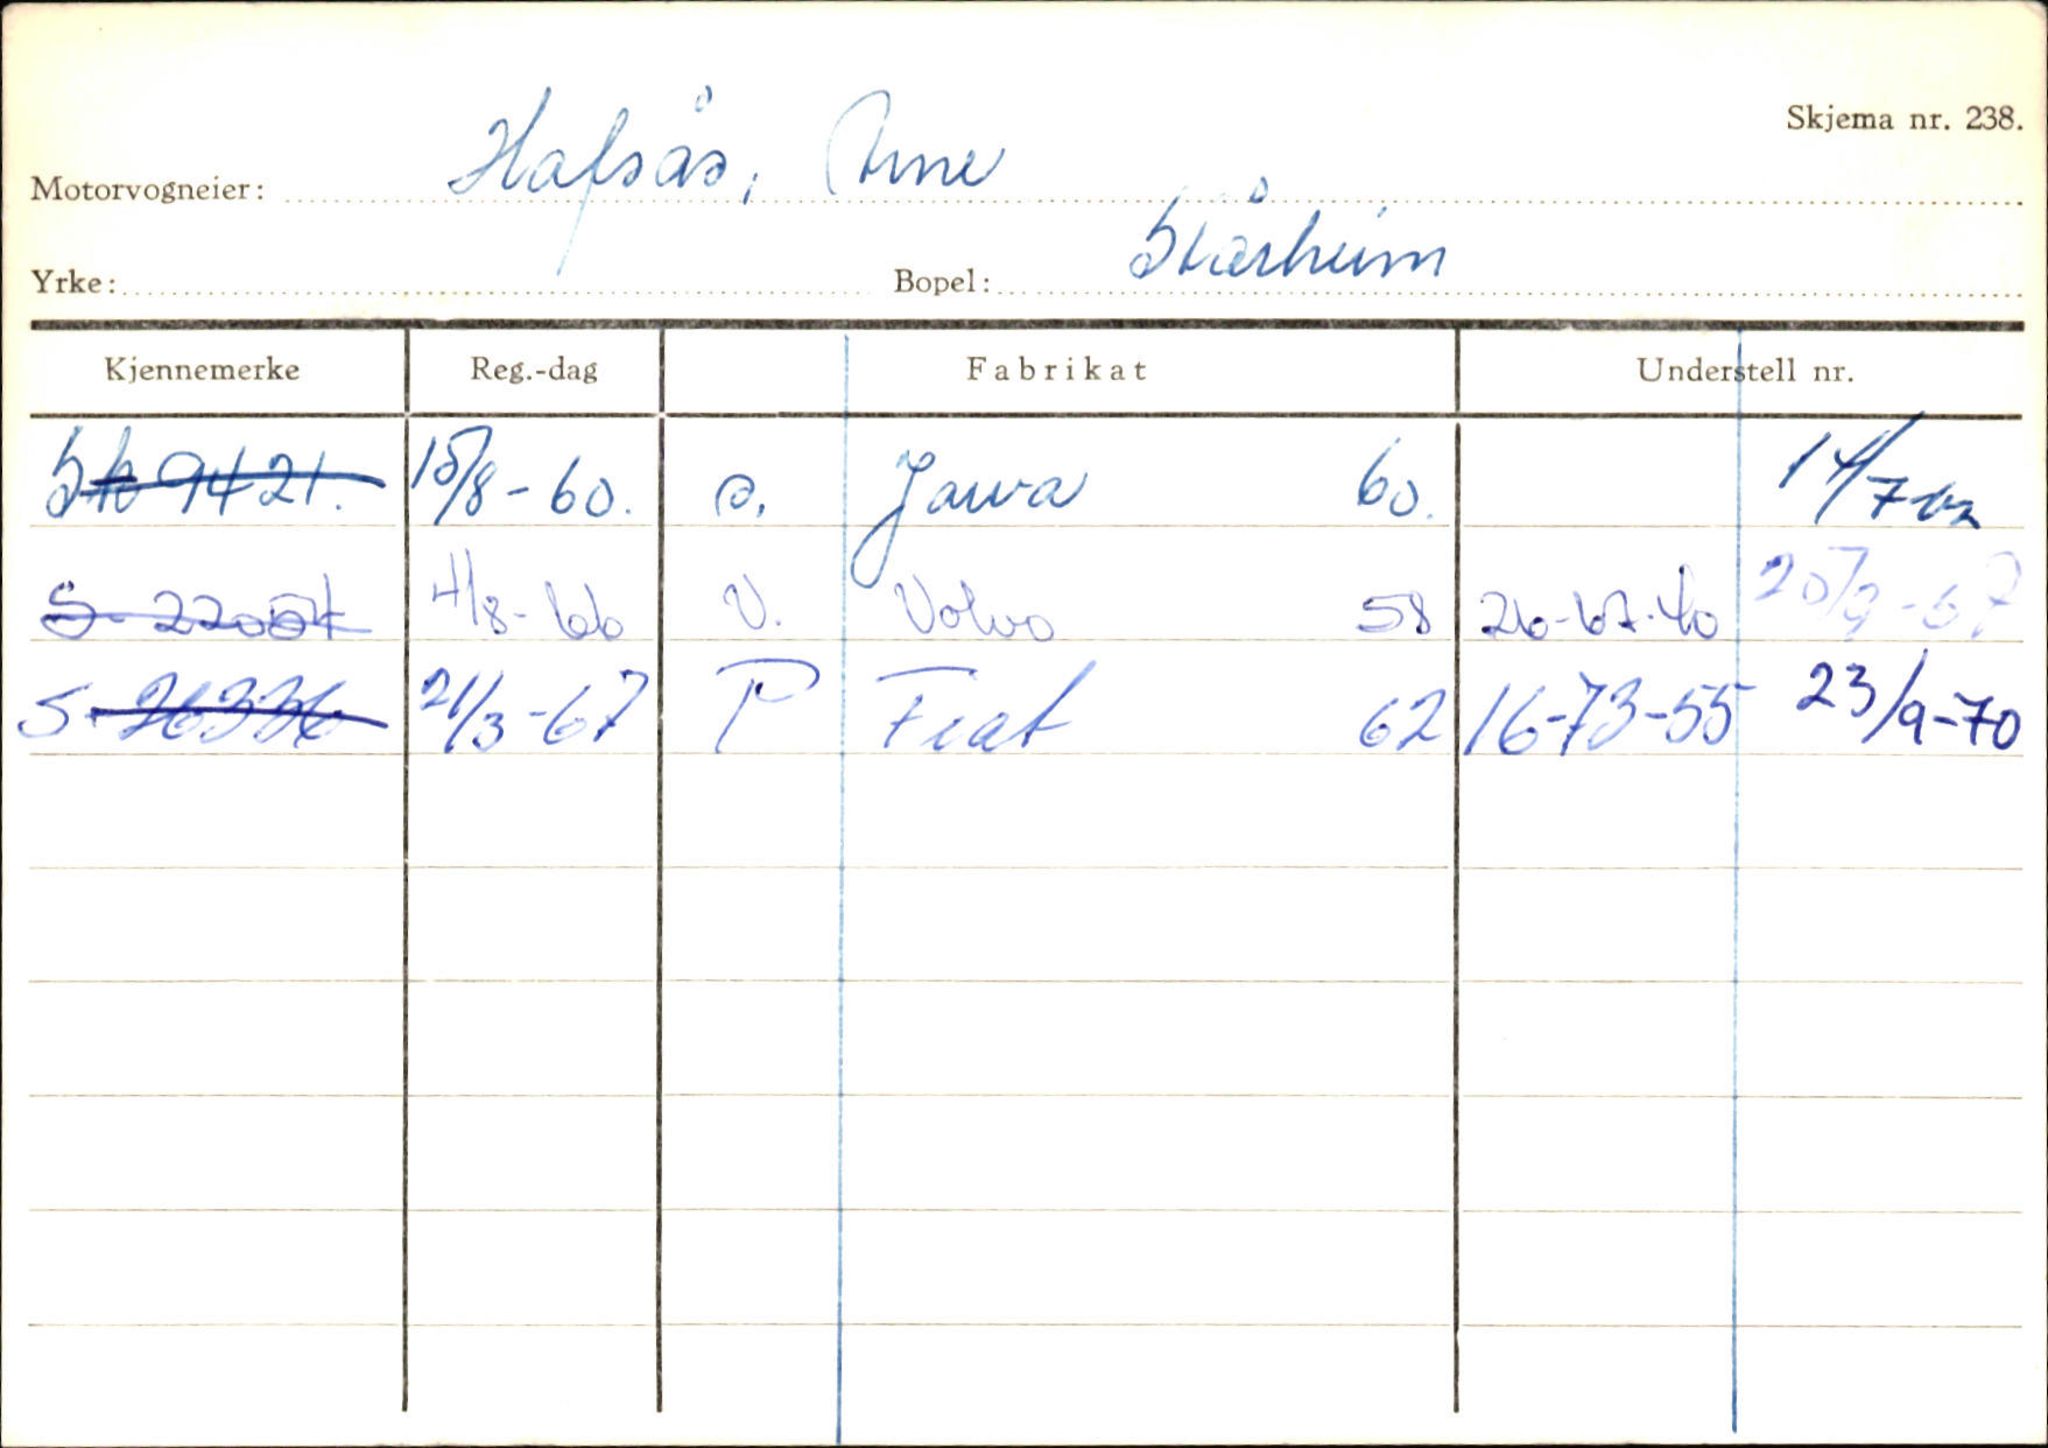 Skjema nr. 238.
Motorvogneier: Hafsås, Arne
Yrke: Bopel: Stårheim
Kjennemerke Reg.-dag Fabrikat Understell nr.
9421. 15/8-60. o. Jawa 60. 14/7
S-22054 4/8-66 V. Volvo 58 26-67-40 20/9-67
S-26336 21/3-67 P Fiat 62 16-73-55 23/9-70